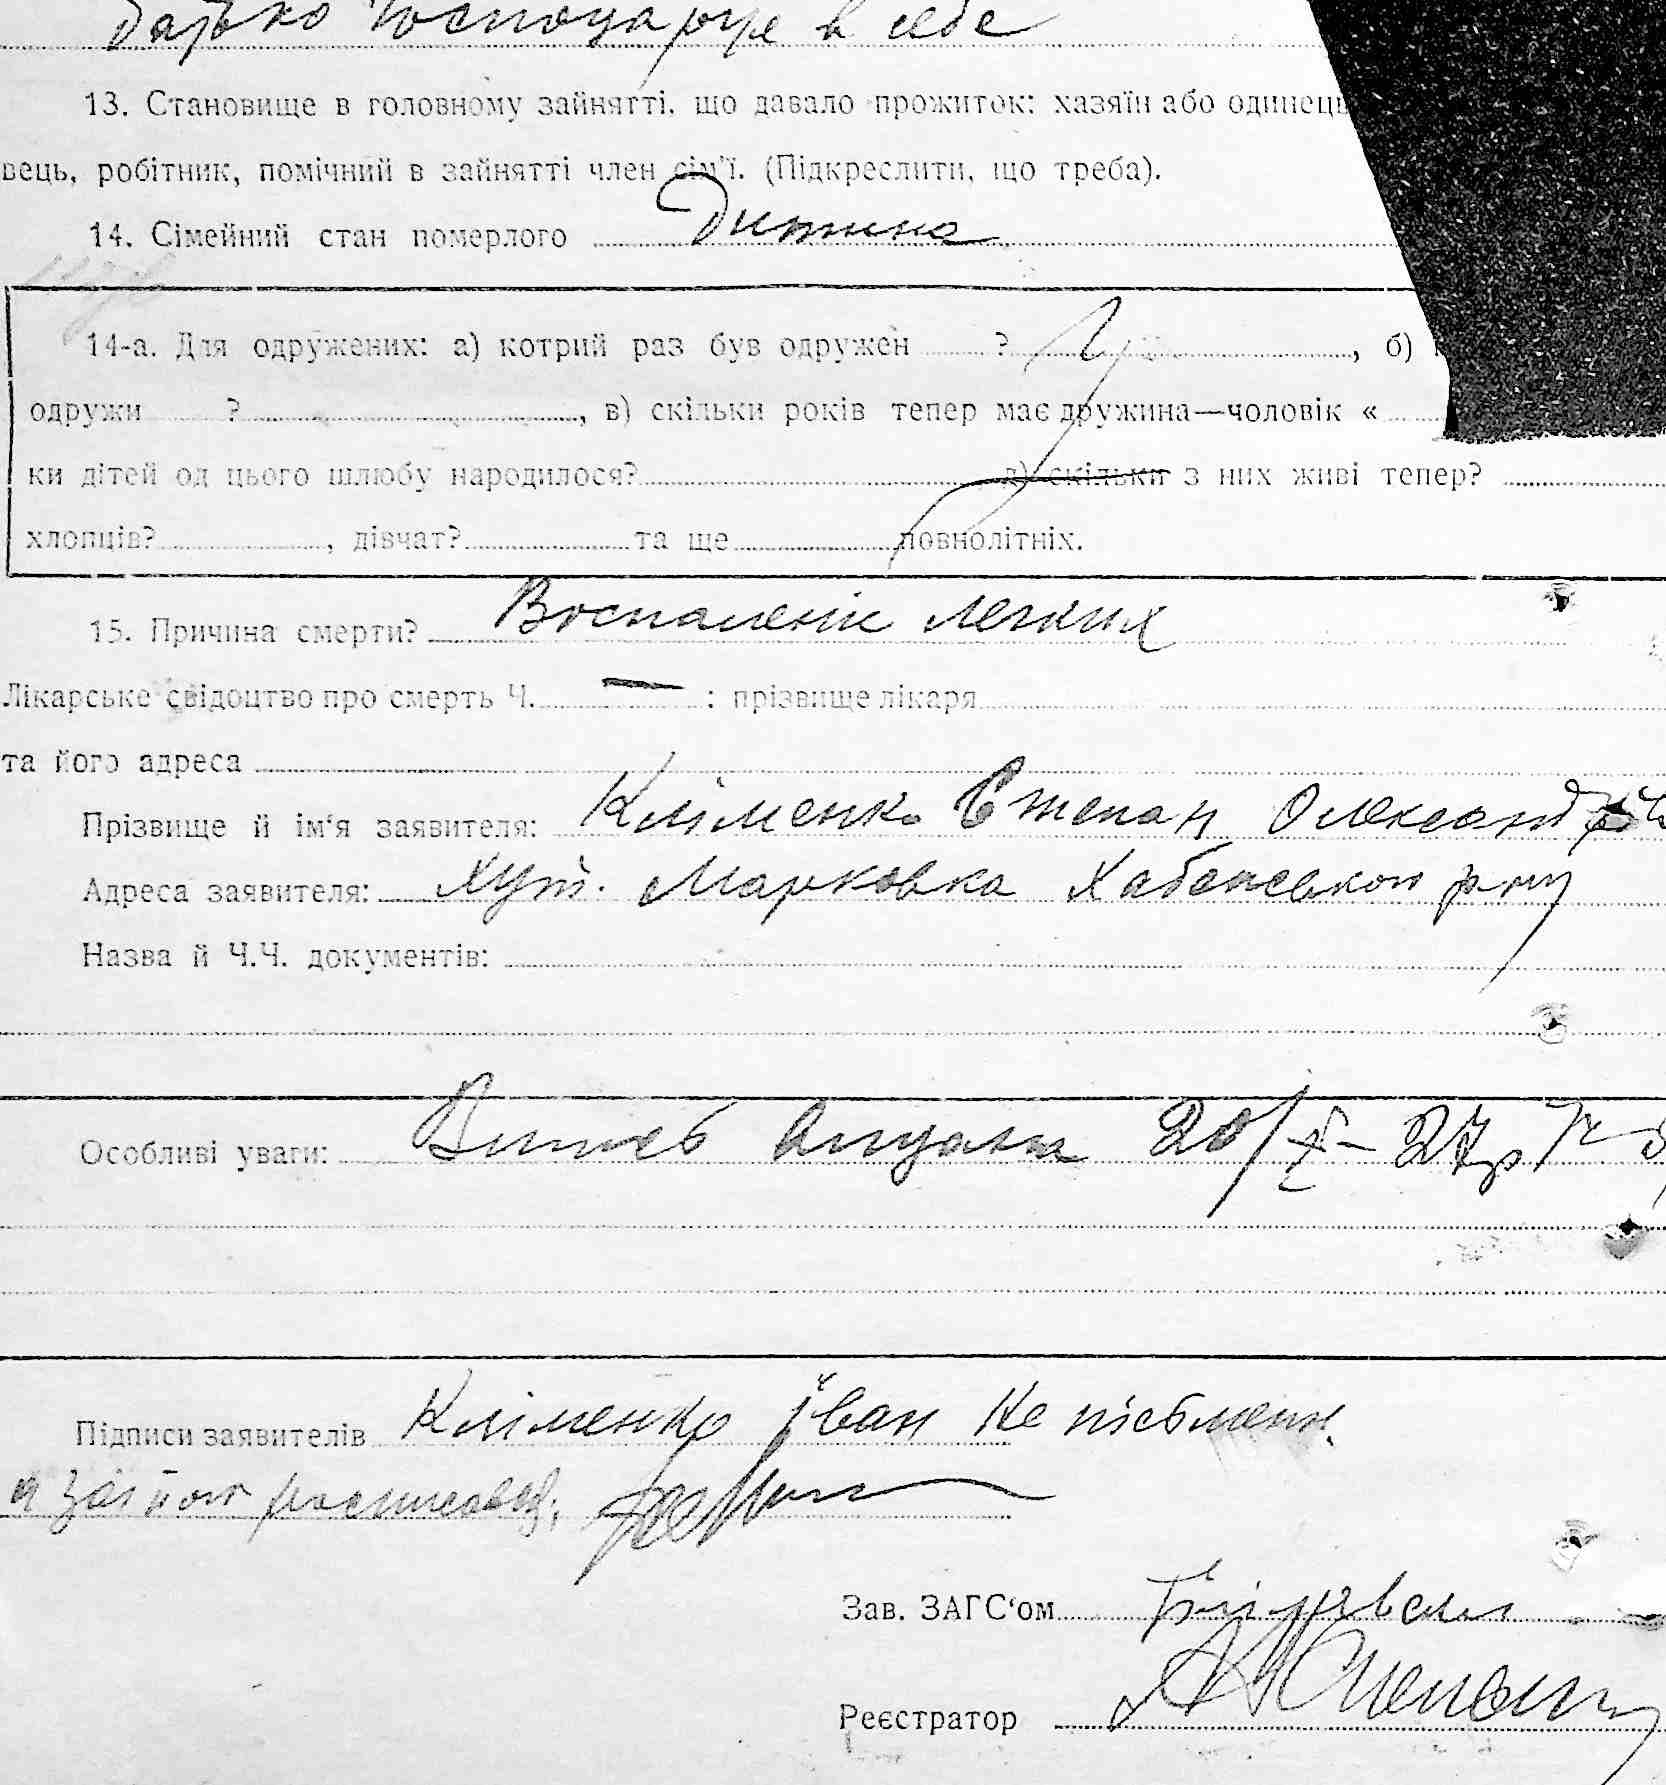 батько господарує в себе
13. Становище в головному зайнятті, що давало прожиток: хазяїн або одинець
вець, робітник, помічний в зайнятті член сім'ї. (Підкреслити, що треба).
14. Сімейний стан померлого Дитина
14-а. Для одружених: а) котрий раз був одружен ? , б)
одружи ? , в) скільки років тепер має дружина—чоловік «
ки дітей од цього шлюбу народилося? д) скільки з них живі тепер?
хлопців? , дівчат? та ще повнолітніх.
15. Причина смерти? Воспаленіе легких
Лікарське свідоцтво про смерть Ч. — : прізвище лікаря
та його адреса
Прізвище й ім'я заявителя: Кліменко Степан Олександр
Адреса заявителя: Хут. Марковка Хабенського р-ну
Назва й Ч.Ч. документів:
Особливі уваги: Витяг видан 20/X – 27р
Підписи заявителів Кліменко Іван не пісьмен.
а за його
Зав. ЗАГС'ом
Реєстратор